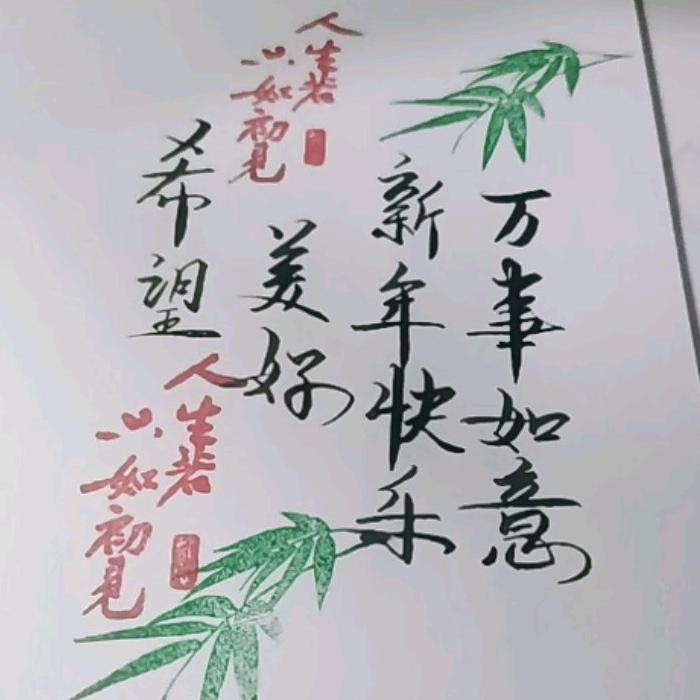 万事如意
新年快乐
美好
希望
人生若
只如初见
人生若
只如初见